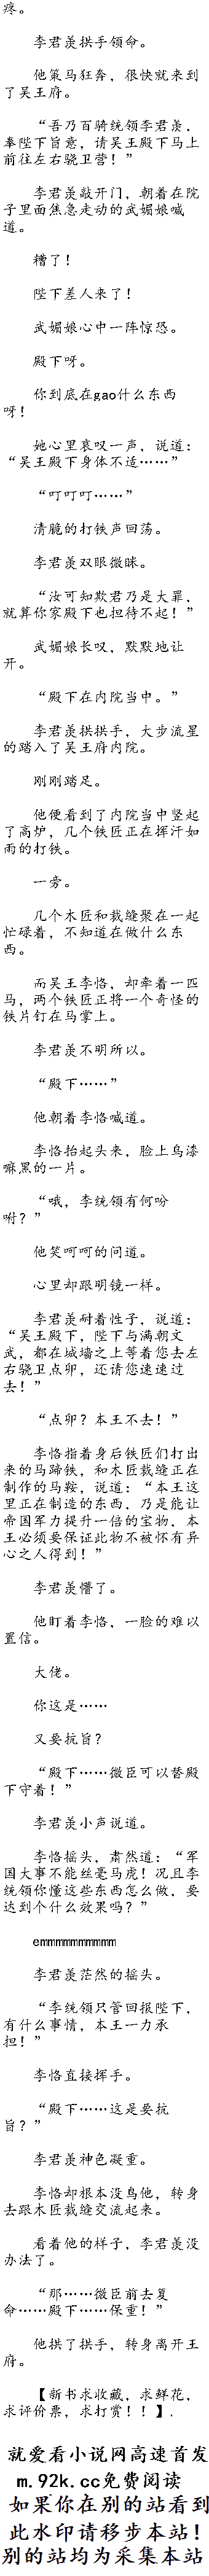 疼。
李君羡拱手领命。
他策马狂奔，很快就来到
了吴王府。
“吾乃百骑统领李君羡，
奉陛下旨意，请吴王殿下马上
前往左右骁卫营！”
李君羡敲开门，朝着在院
子里面焦急走动的武媚娘喊
道。
糟了！
陛下差人来了！
武媚娘心中一阵惊恐。
殿下呀。
你到底在gao什么东西
呀！
她心里哀叹一声，说道：
“吴王殿下身体不适……”
“叮叮叮……”
清脆的打铁声回荡。
李君羡双眼微眯。
“汝可知欺君乃是大罪，
就算你家殿下也担待不起！”
武媚娘长叹，默默地让
开。
“殿下在内院当中。”
李君羡拱拱手，大步流星
的踏入了吴王府内院。
刚刚踏足。
他便看到了内院当中竖起
了高炉，几个铁匠正在挥汗如
雨的打铁。
一旁。
几个木匠和裁缝聚在一起
忙碌着，不知道在做什么东
西。
而吴王李恪，却牵着一匹
马，两个铁匠正将一个奇怪的
铁片钉在马掌上。
李君羡不明所以。
“殿下……”
他朝着李恪喊道。
李恪抬起头来，脸上乌漆
嘛黑的一片。
“哦，李统领有何吩
咐？”
他笑呵呵的问道。
心里却跟明镜一样。
李君羡耐着性子，说道：
“吴王殿下，陛下与满朝文
武，都在城墙之上等着您去左
右骁卫点卯，还请您速速过
去！”
“点卯？本王不去！”
李恪指着身后铁匠们打出
来的马蹄铁，和木匠裁缝正在
制作的马鞍，说道：“本王这
里正在制造的东西，乃是能让
帝国军力提升一倍的宝物，本
王必须要保证此物不被怀有异
心之人得到！”
李君羡懵了。
他盯着李恪，一脸的难以
置信。
大佬。
你这是……
又要抗旨？
“殿下……微臣可以替殿
下守着！”
李君羡小声说道。
李恪摇头，肃然道：“军
国大事不能丝毫马虎！况且李
统领你懂这些东西怎么做，要
达到个什么效果吗？”
emmmmmmmmmm
李君羡茫然的摇头。
“李统领只管回报陛下，
有什么事情，本王一力承
担！”
李恪直接挥手。
“殿下……这是要抗
旨？”
李君羡神色凝重。
李恪却根本没鸟他，转身
去跟木匠裁缝交流起来。
看着他的样子，李君羡没
办法了。
“那……微臣前去复
命……殿下……保重！”
他拱了拱手，转身离开王
府。
【新书求收藏，求鲜花，
求评价票，求打赏！！】.
就爱看小说网高速首发
m.92k.cc免费阅读
如果你在别的站看到
此水印请移步本站！
别的站均为采集本站